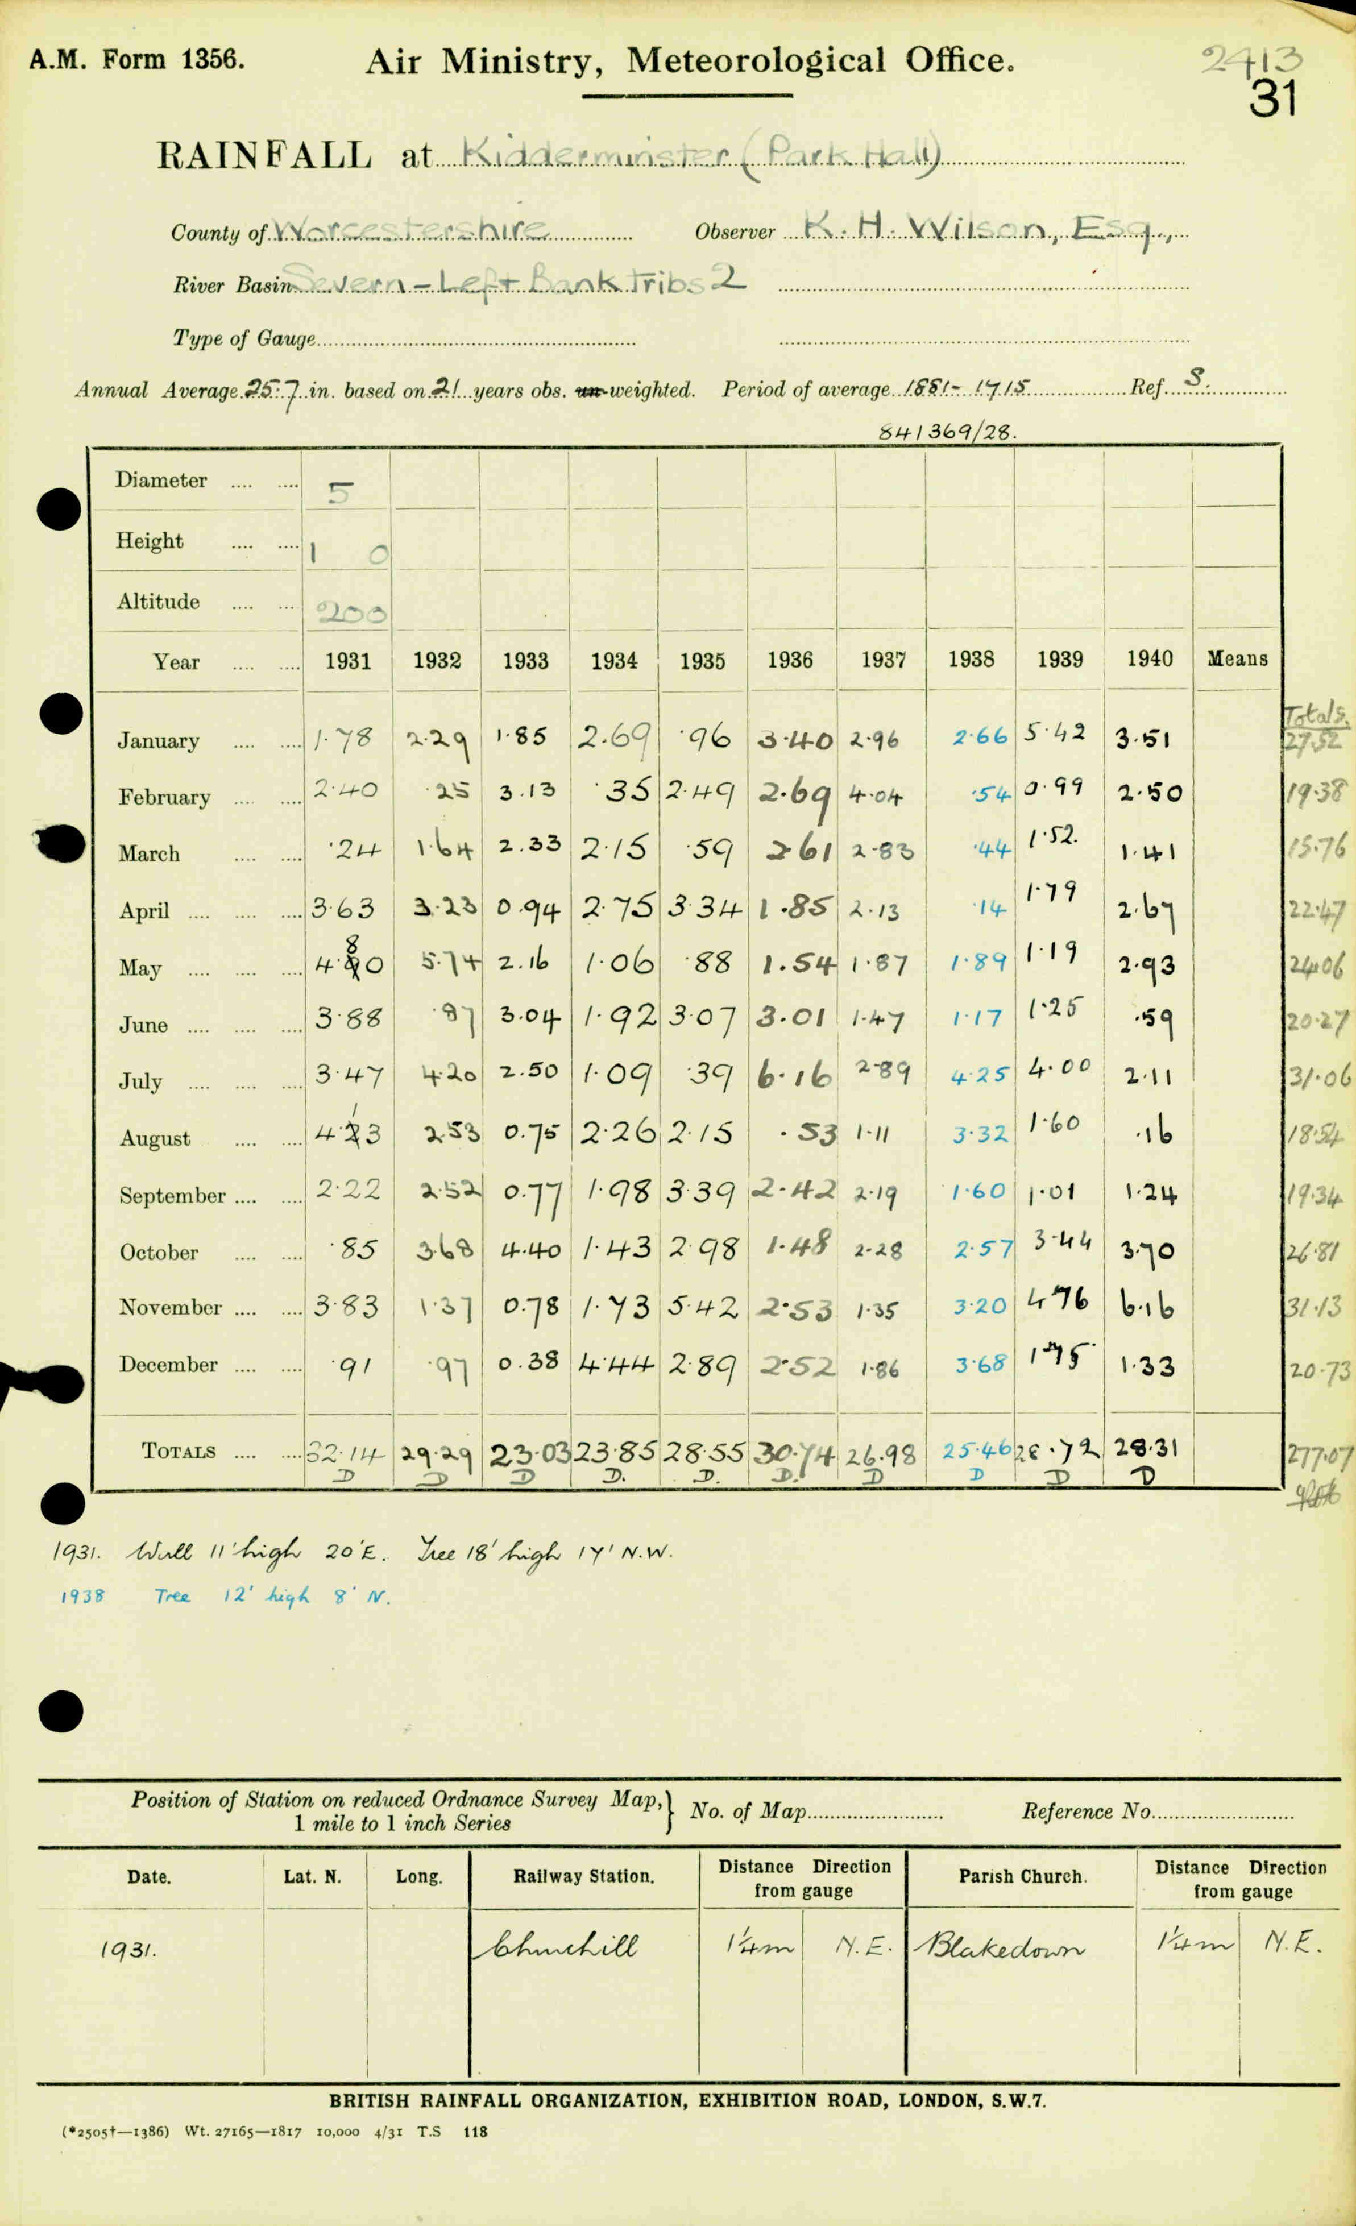 A.M. Form 1356. Air Ministry, Meteorological Office. 2413
31
RAINFALL at Kidderminster (Park Hall)
County of Worcestershire Observer K. H. Wilson, Esq.,
River Basin Severn - Left Bank Tribs 2
Type of Gauge
Annual Average 25.7 in. based on 21 years obs. un-weighted. Period of average 1881-1915 Ref. S.
841369/28.
Diameter 5
Height 1 0
Altitude 200
Year 1931 1932 1933 1934 1935 1936 1937 1938 1939 1940 Means
Totals.
January 1.78 2.29 1.85 2.69 .96 3.40 2.96 2.66 5.42 3.51 27.52
February 2.40 .25 3.13 .35 2.49 2.69 4.04 .54 0.99 2.50 19.38
March .24 1.64 2.33 2.15 .59 2.61 2.83 .44 1.52. 1.41 15.76
April 3.63 3.23 0.94 2.75 3.34 1.85 2.13 .14 1.79 2.67 22.47
May 4.80 5.74 2.16 1.06 .88 1.54 1.87 1.89 1.19 2.93 24.06
June 3.88 .87 3.04 1.92 3.07 3.01 1.47 1.17 1.25 .59 20.27
July 3.47 4.20 2.50 1.09 .39 6.16 2.89 4.25 4.00 2.11 31.06
August 4.13 2.53 0.75 2.26 2.15 .53 1.11 3.32 1.60 .16 18.54
September 2.22 2.52 0.77 1.98 3.39 2.42 2.19 1.60 1.01 1.24 19.34
October .85 3.68 4.40 1.43 2.98 1.48 2.28 2.57 3.44 3.70 26.81
November 3.83 1.37 0.78 1.73 5.42 2.53 1.35 3.20 4.76 6.16 31.13
December .91 .97 0.38 4.44 2.89 2.52 1.86 3.68 1.75 1.33 20.73
TOTALS 32.14 29.29 23.03 23.85 28.55 30.74 26.98 25.46 28.72 28.31 277.07
D D D D. D. D. D D D D
1931. Wall 11' high 20' E. Tree 18' high 17' N.W.
1938 Tree 12' high 8' N.
Position of Station on reduced Ordnance Survey Map, 1 mile to 1 inch Series No. of Map Reference No.
Date. Lat. N. Long. Railway Station. Distance Direction from gauge Parish Church. Distance Direction from gauge
1931. Churchill 1¼m N.E. Blakedown 1¼m N.E.
BRITISH RAINFALL ORGANIZATION, EXHIBITION ROAD, LONDON, S.W.7.
(*2505†—1386) Wt. 27165—1817 10,000 4/31 T.S 118